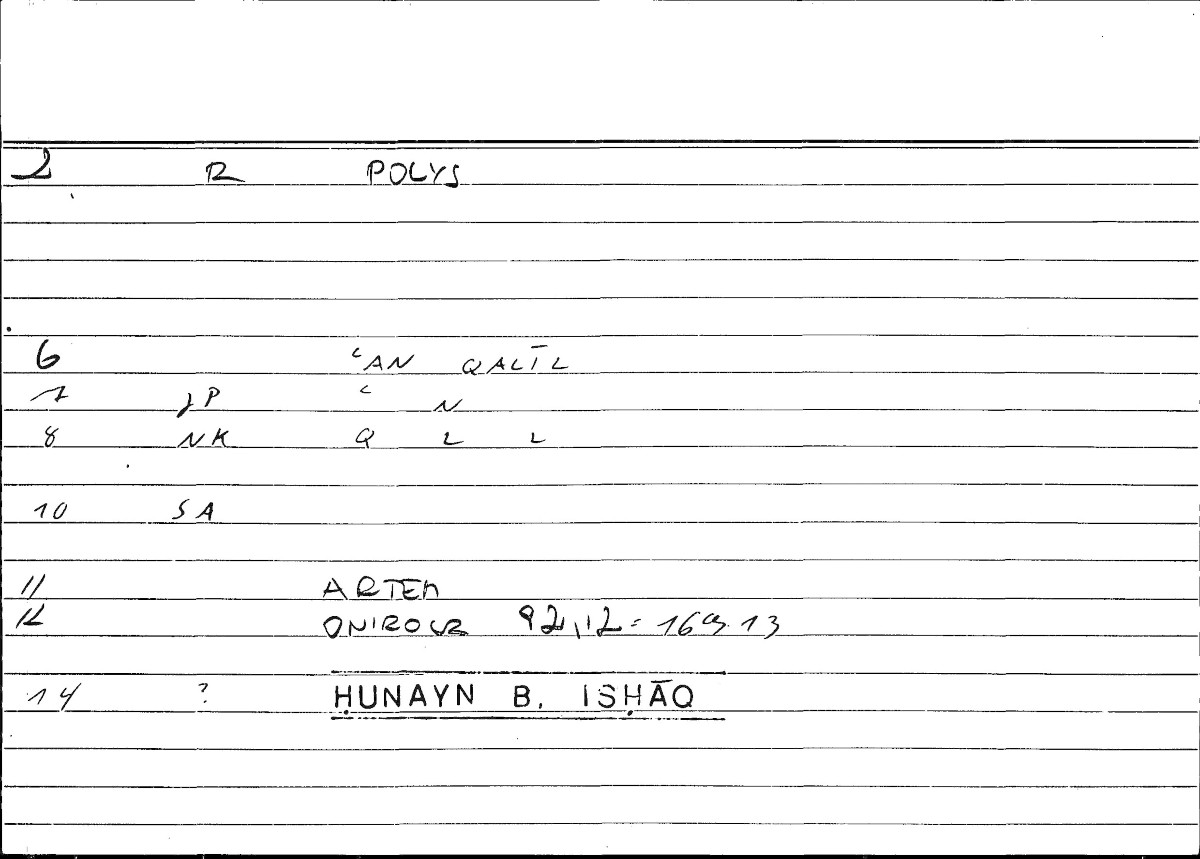 2 R POLYS
6 ʿAN QALĪL
7 JP ʿ N
8 NK Q L L
10 SA
11 ARTEM
12 ONIROCR 92,12 = 169,13
14 ? ḤUNAYN B. ISḤĀQ